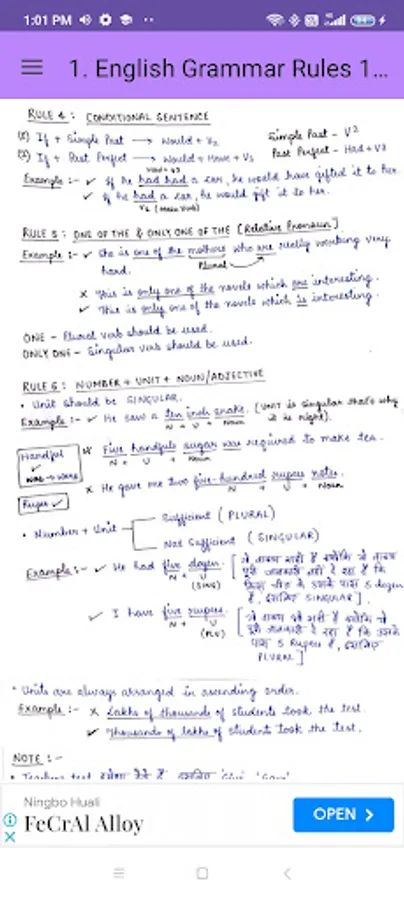 1:01 PM
1. English Grammar Rules 1...
RULE 4 : CONDITIONAL SENTENCE
(1) If + Simple Past → Would + V1 Simple Past - V2
(2) If + Past Perfect → Would + Have + V3 Past Perfect - Had + V3
Example :- ✓ If he had had a car, he would have gifted it to her.
✓ If he had a car, he would gift it to her.
V2 (Main Verb)
RULE 5 : ONE OF THE & ONLY ONE OF THE [Relative Pronoun]
Example :- ✓ She is one of the mothers who are really working very
hard. Plural
× This is only one of the novels which are interesting.
✓ This is only one of the novels which is interesting.
ONE - Plural verb should be used.
ONLY ONE - Singular verb should be used.
RULE 6 : NUMBER + UNIT + NOUN/ADJECTIVE
• Unit should be SINGULAR.
Example :- ✓ He saw a ten inch snake. (UNIT is singular that's why
N + U + Noun it is right).
Handful
✓
was → were
× Five handfuls sugar was required to make tea.
N + U + Noun
Rupee ✓
× He gave me two five-hundred rupees notes.
N + U + Noun
• Number + Unit
Sufficient (PLURAL)
Not Sufficient (SINGULAR)
Example :- ✓ He had five dozen.
N + U
(SING)
✓ I have five rupees.
N + U
(PLU)
* Units are always arranged in ascending order.
Example :- × Lakhs of thousands of students took the test.
✓ Thousands of lakhs of student took the test.
NOTE :-
Ningbo Huali
FeCrAl Alloy
OPEN